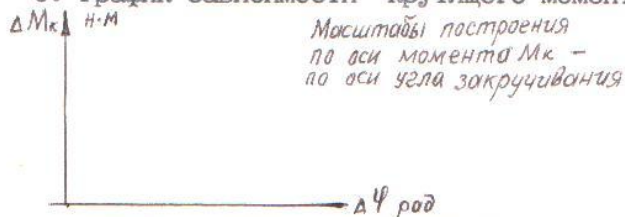 График зависимости крутящего момен
Δ Мк Н·М
Масштабы построения
по оси момента Мк –
по оси угла закручивания
Δ φ рад